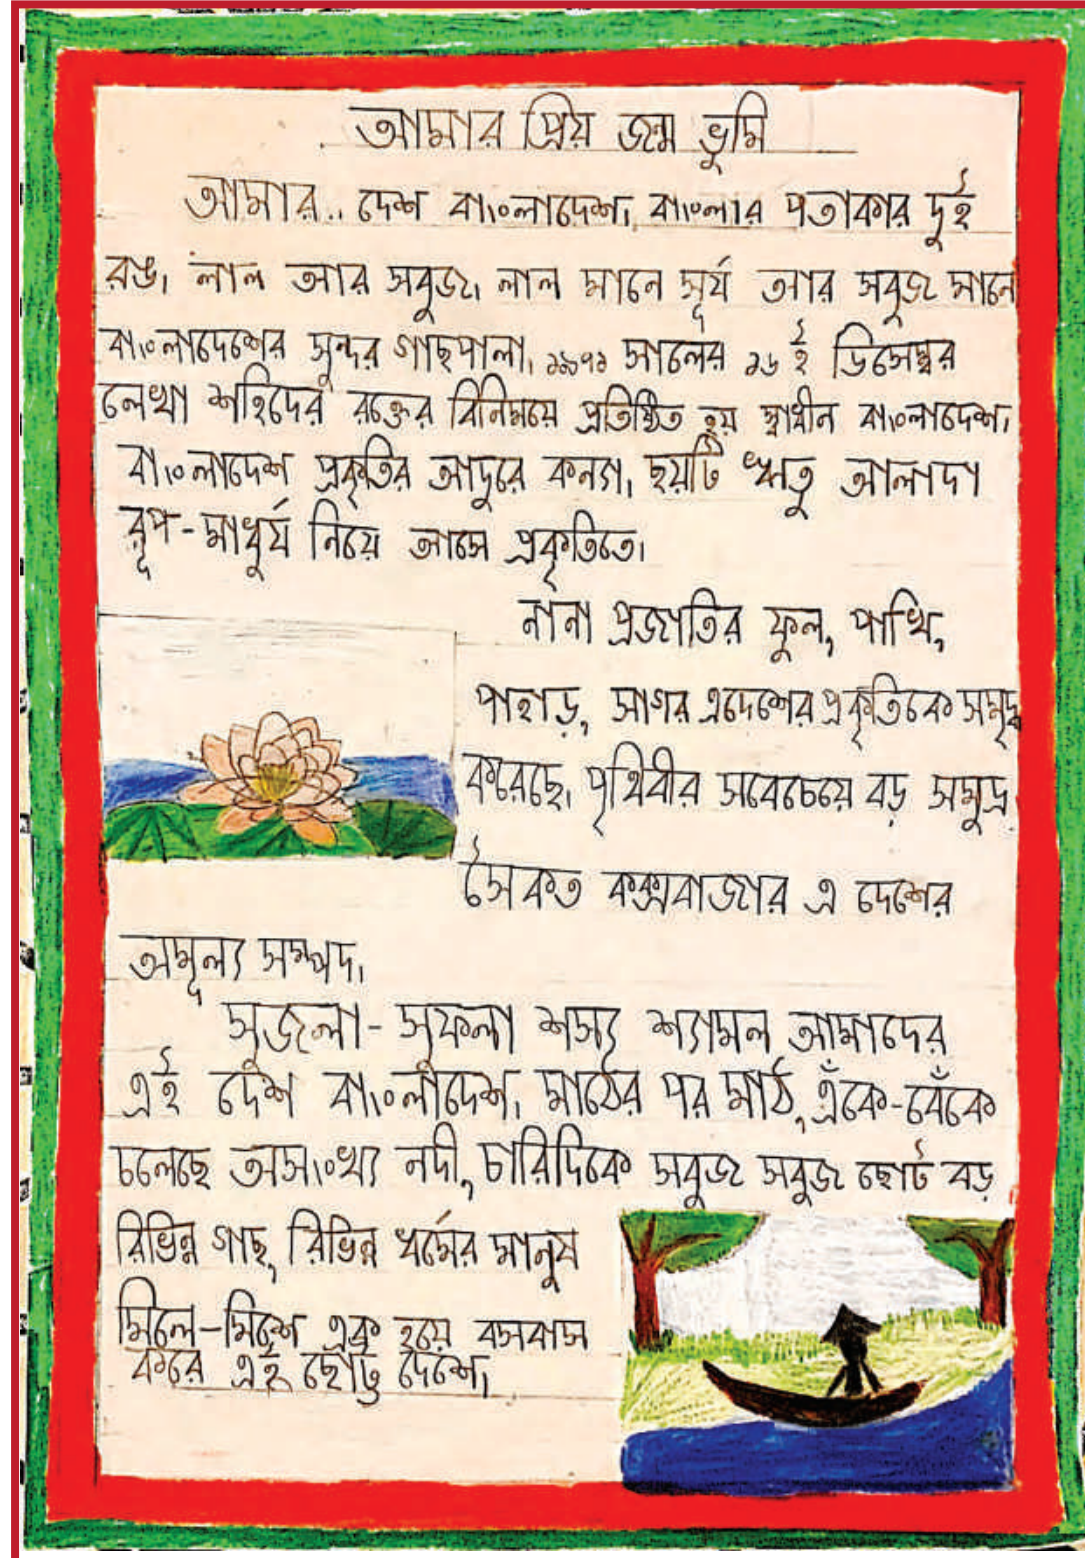 আমার প্রিয় জন্ম ভুমি
আমার.. দেশ বাংলাদেশ। বাংলার পতাকার দুই
রঙ। লাল আর সবুজ। লাল মানে সূর্য আর সবুজ মানে
বাংলাদেশের সুন্দর গাছপালা। ১৯৭১ সালের ১৬ ই ডিসেম্বর
লেখা শহিদের রক্তের বিনিময়ে প্রতিষ্ঠিত হয় স্বাধীন বাংলাদেশ।
বাংলাদেশ প্রকৃতির আদুরে কন্যা। ছয়টি ঋতু আলাদা
রূপ-মাধুর্য নিয়ে আসে প্রকৃতিতে।
নানা প্রজাতির ফুল, পাখি,
পাহাড়, সাগর এদেশের প্রকৃতিকে সমৃদ্ধ
করেছে। পৃথিবীর সবেচেয়ে বড় সমুদ্র
সৈকত কক্সবাজার এ দেশের
অমূল্য সম্পদ।
সুজলা-সুফলা শস্য শ্যামল আমাদের
এই দেশ বাংলাদেশ। মাঠের পর মাঠ, এঁকে-বেঁকে
চলেছে অসংখ্য নদী, চারিদিকে সবুজ সবুজ ছোট বড়
বিভিন্ন গাছ, বিভিন্ন ধর্মের মানুষ
মিলে-মিশে এক হয়ে বসবাস
করে এই ছোট্ট দেশে।